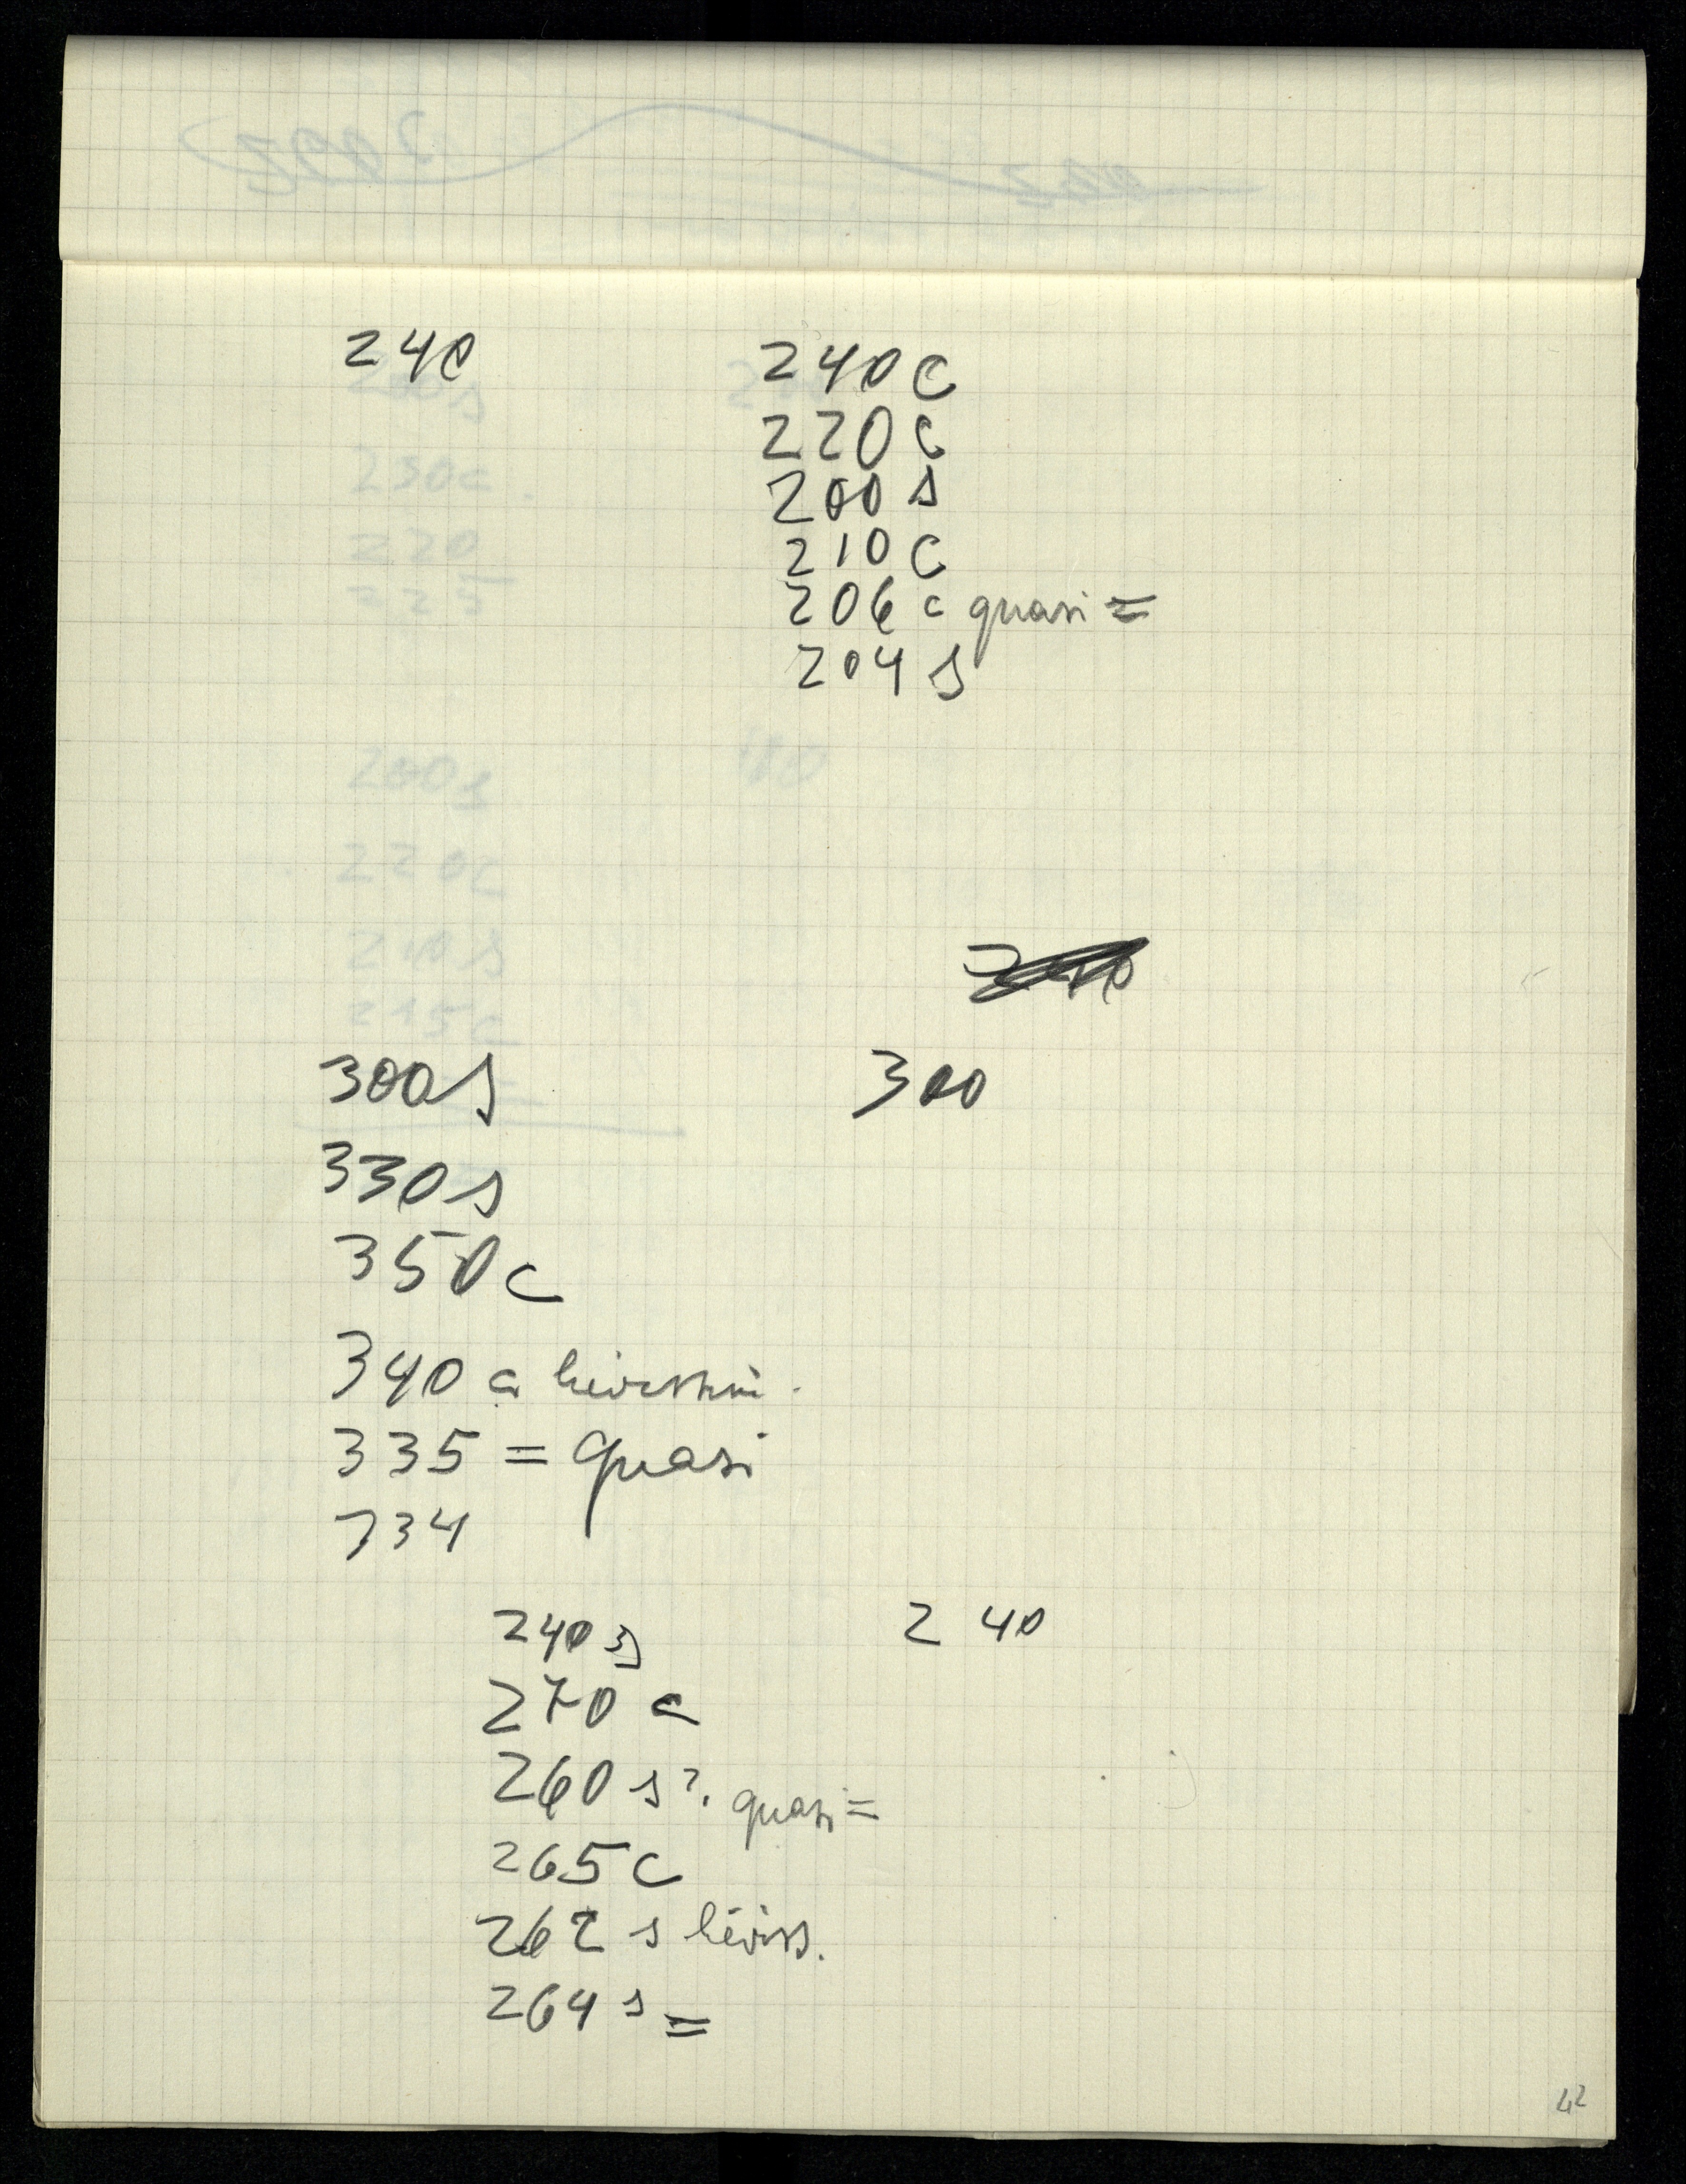 240 240 c
220 c
200 s
210 c
206 c quasi =
204 s
300 s 300
330 s
350 c
340 c
335 = quasi
334
240 s 240
270 c
260 s?. quasi =
265 c
262 s lièviss.
264 s =
42